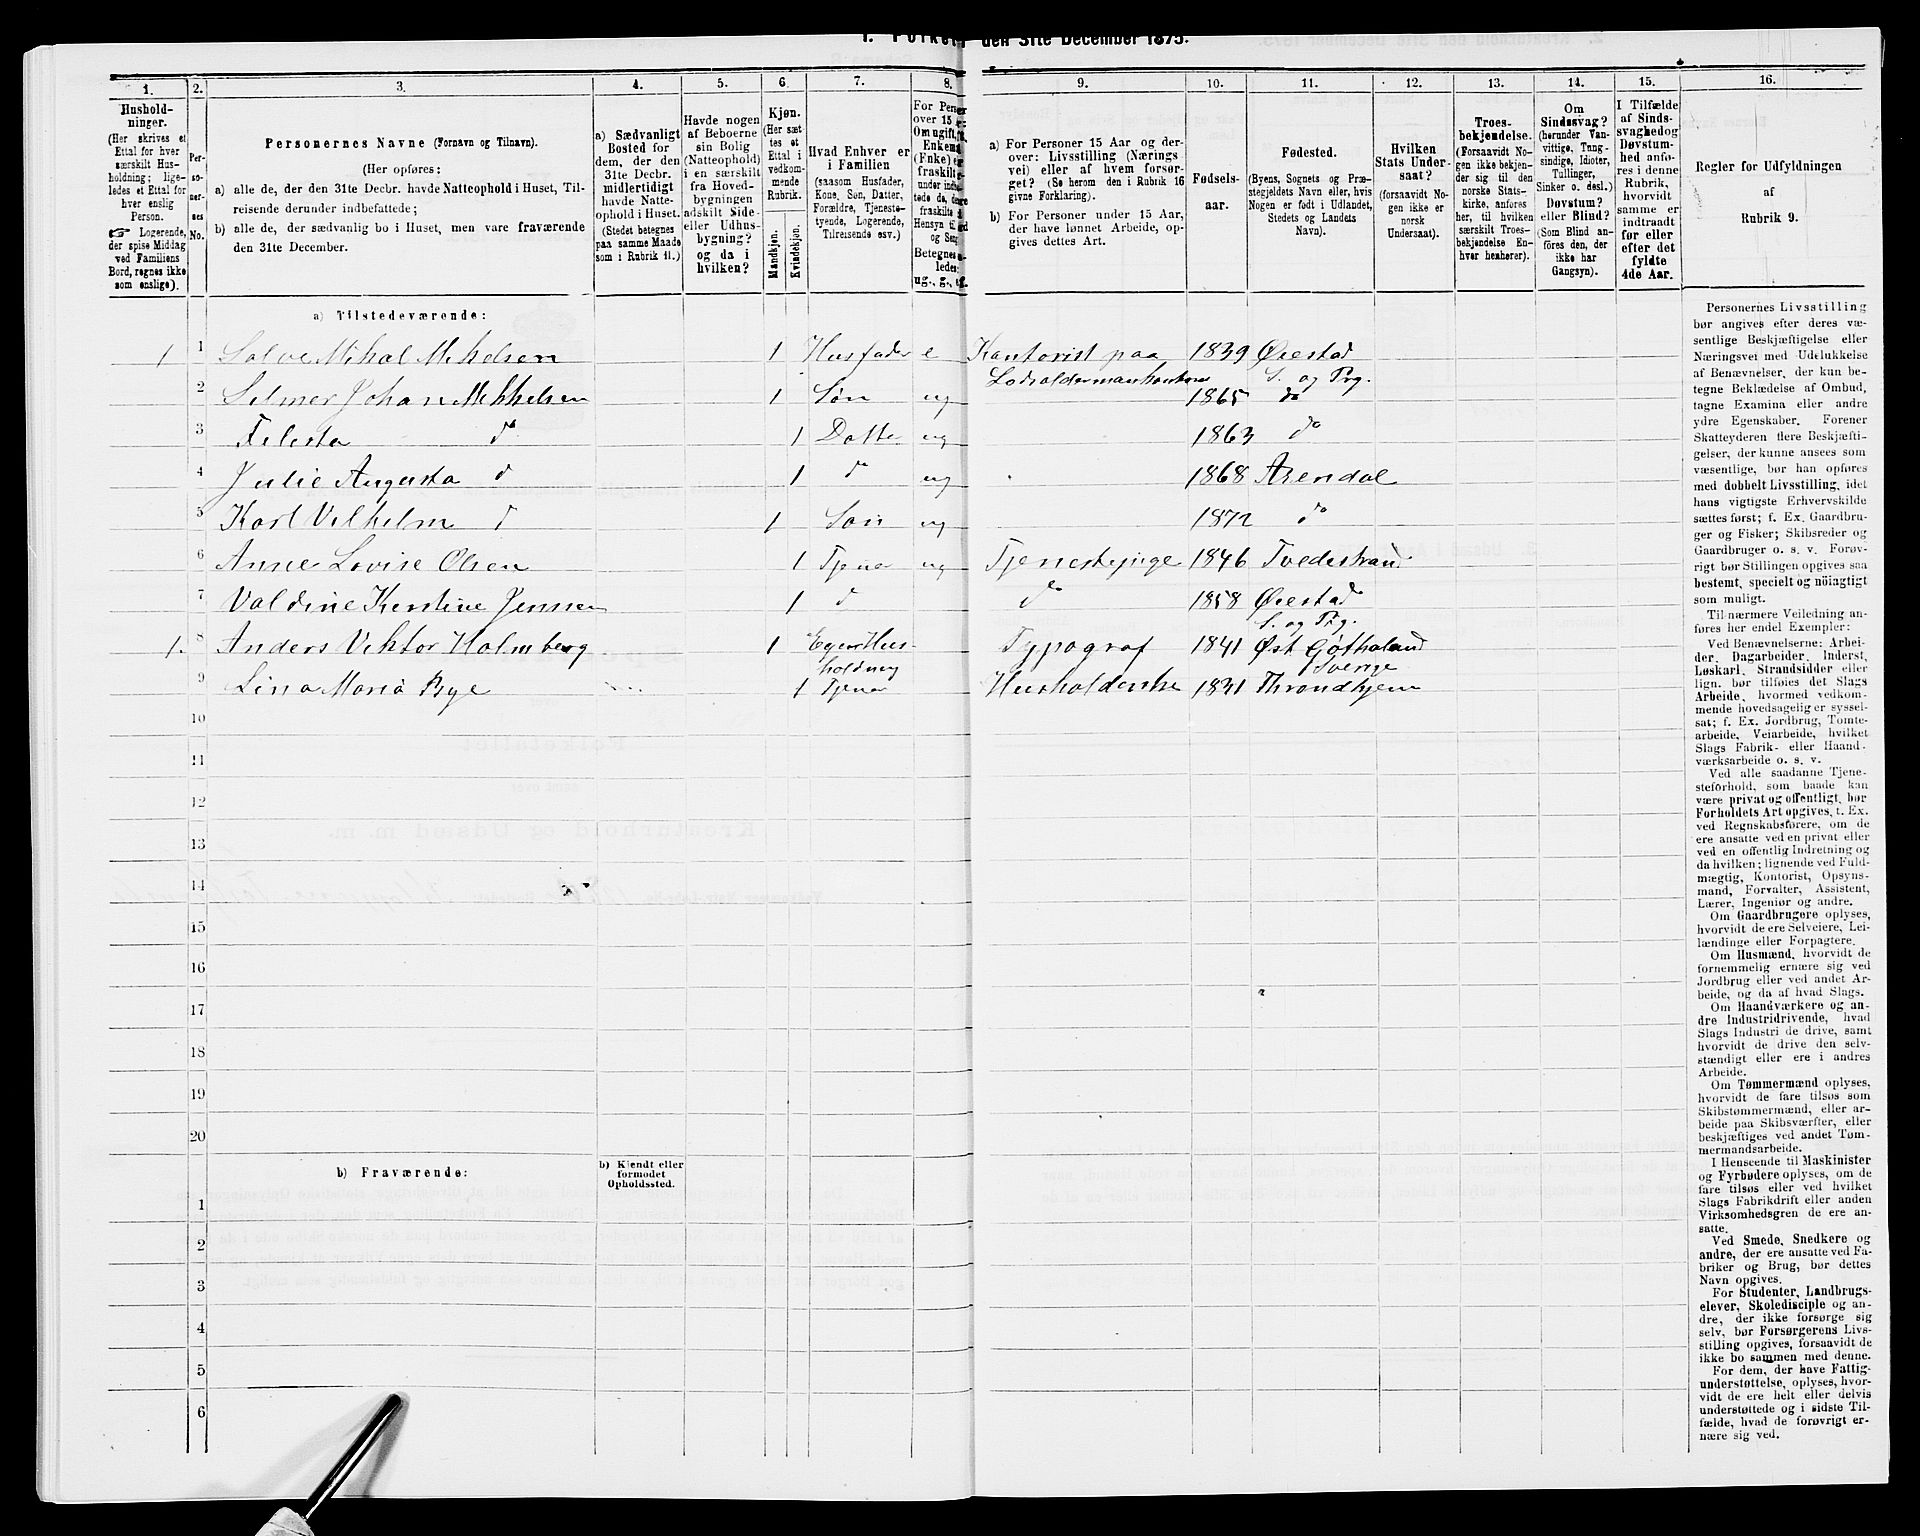 den 31te December 1875.
1. 2. 3. 4. 5. 6. 7. 8. 9. 10. 11. 12. 13. 14. 15. 16.
Hushold-
ninger.
(Her skrives et
Ettal for hver
særskilt Hus-
holdning; lige-
ledes et Ettal for
hver enslig
Person.
☞ Logerende,
der spise Middag
ved Familiens
Bord, regnes ikke
som enslige).
Per-
so-
ner-
nes
No.
Personernes Navne (Fornavn og Tilnavn).
(Her opføres:
a) alle de, der den 31te Decbr. havde Natteophold i Huset, Til-
reisende derunder indbefattede;
b) alle de, der sædvanlig bo i Huset, men vare fraværende
den 31te December.
a) Sædvanligt
Bosted for
dem, der den
31te Decbr.
midlertidigt
havde Natte-
ophold i Huset.
(Stedet betegnes
paa samme Maade
som i Rubrik 11.)
Havde nogen
af Beboerne
sin Bolig
(Natteophold)
i en særskilt
fra Hoved-
bygningen
adskilt Side-
eller Udhus-
bygning?
og da i
hvilken?
Kjøn.
(Her sæt
tes et
Ettal i
vedkom-
mende
Rubrik.
Mandkjøn.
Kvindekjøn.
Hvad Enhver er
i Familien
(saasom Husfader,
Kone, Søn, Datter,
Forældre, Tjeneste-
tyende, Logerende,
Tilreisende osv.)
For Person
over 15
Om ugift,
Enkem
(Fnke)
fraskilt
under indbe-
tede de,
fraskilte
Hensyn til
og Seng
Betegnes
ledes:
ug., g., e.
a) For Personer 15 Aar og der-
over: Livsstilling (Nærings
vei) eller af hvem forsør-
get? (Se herom den i Rubrik 16
givne Forklaring).
b) For Personer under 15 Aar,
der have lønnet Arbeide, op-
gives dettes Art.
Fødsels-
aar.
Fødested.
(Byens, Sognets og Præ-
stegjeldets Navn eller, hvis
Nogen er født i Udlandet,
Stedets og Landets
Navn).
Hvilken
Stats Under-
saat?
(forsaavidt No-
gen ikke er
norsk
Undersaat).
Troes-
bekjendelse.
(Forsaavidt No-
gen ikke bekjen-
der sig til den
norske Stats-
kirke, anføres
her, til hvilken
særskilt Troes-
bekjendelse En-
hver henhører).
Om
Sindssvag?
(herunder Van-
vittige, Tung-
sindige, Idioter,
Tullinger,
Sinker o. desl.)
Døvstum?
eller Blind?
(Som Blind an-
føres den, der
ikke har
Gangsyn).
I Tilfælde
af Sinds-
svaghed og
Døvstum-
hed anfø-
res i denne
Rubrik,
hvorvidt
samme er
indtraadt
før eller
efter det
fyldte
4de Aar.
Regler for Udfyldningen
af
Rubrik 9.
a) Tilstedeværende:
1 1 Salve Mihal Mihelsen 1 Husfader e Kantorist paa 1839 Øiestad
S. og Prg.
2 Selmer Johan Mikkelsen 1 Søn ug 1865 do
3 Felesta do 1 Datte ug 1863 do
4 Julie Augusta d 1 d ug 1868 Arendal
5 Karl Vilhelm d 1 Søn ug 1872 do
6 Anne Lovise Olsen 1 Tjener ug Tjenestepige 1846 Tvedestrand
7 Valdine Kerstine Jenssen 1 d do 1858 Øiestad
S. og Prg.
1. 8 Anders Viktor Holmberg 1 Egen Hus- Typograf 1841 Øst Gøthaland
holdning Sverge
9 Lina Maria Rye 1 Tjener Husholderske 1831 Throndhjem
10
11
12
13
14
15
16
17
18
19
20
b) Fraværende:
b) Kjendt eller
formodet
Opholdssted.
1
2
3
4
5
6
Personernes Livsstilling
bør angives efter deres væ-
sentlige Beskjæftigelse eller
Næringsvei med Udelukkelse
af Benævnelser, der kun be-
tegne Beklædelse af Ombud,
tagne Examina eller andre
ydre Egenskaber. Forener
Skatteyderen flere Beskjæfti-
gelser, der kunne ansees som
væsentlige, bør han opføres
med dobbelt Livsstilling, idet
hans vigtigste Erhvervskilde
sættes først; f. Ex. Gaardbru-
ger og Fisker; Skibsreder og
Gaardbruger o. s. v. Forøv-
rigt bør Stillingen opgives saa
bestemt, specielt og nöiagtigt
som muligt.
Til nærmere Veiledning an-
føres her endel Exempler:
Ved Benævnelserne: Arbei-
der, Dagarbeider, Inderst,
Løskarl, Strandsidder eller
lign. bør tilføies det Slags
Arbeide, hvormed vedkom-
mende hovedsagelig er syssel-
sat; f. Ex. Jordbrug, Tomte-
arbeide, Veiarbeide, hvilket
Slags Fabrik- eller Haand-
værksarbeide o. s. v.
Ved alle saadanne Tjene-
steforhold, som baade kan
være privat og offentligt, bør
Forholdets Art opgives, t. Ex.
ved Regnskabsførere, om de
ere ansatte ved en privat eller
ved en offentlig Indretning og
da hvilken; lignende ved Fuld-
mægtig, Kontorist, Opsyns-
mand, Forvalter, Assistent,
Lærer, Ingeniør og andre.
Om Gaardbrugere oplyses,
hvorvidt de ere Selveiere, Lei-
lændinge eller Forpagtere.
Om Husmænd, hvorvidt de
fornemmelig ernære sig ved
Jordbrug eller ved andet Ar-
beide, og da af hvad Slags.
Om Haandværkere og an-
dre Industridrivende, hvad
Slags Industri de drive, samt
hvorvidt de drive den selv-
stændigt eller ere i andres
Arbeide.
Om Tømmermænd oplyses,
hvorvidt de fare tilsøs som
Skibstømmermænd, eller ar-
beide paa Skibsværfter, eller
beskjæftiges ved andet Tøm-
mermandsarbeide.
I Henseende til Maskinister
og Fyrbødere oplyses, om de
fare tilsøs eller ved hvilket
Slags Fabrikdrift eller anden
Virksomhedsgren de ere an-
satte.
Ved Smede, Snedkere og
andre, der ere ansatte ved Fa-
briker og Brug, bør dettes
Navn opgives.
For Studenter, Landbrugs-
elever, Skoledisciple og an-
dre, der ikke forsørge sig
selv, bør Forsørgerens Livs-
stilling opgives, forsaavidt de
ikke bo sammen med denne.
For dem, der have Fattig-
understøttelse, oplyses, hvor-
vidt de ere helt eller delvis
understøttede og i sidste Til-
fælde, hvad de forøvrigt er-
nære sig ved.